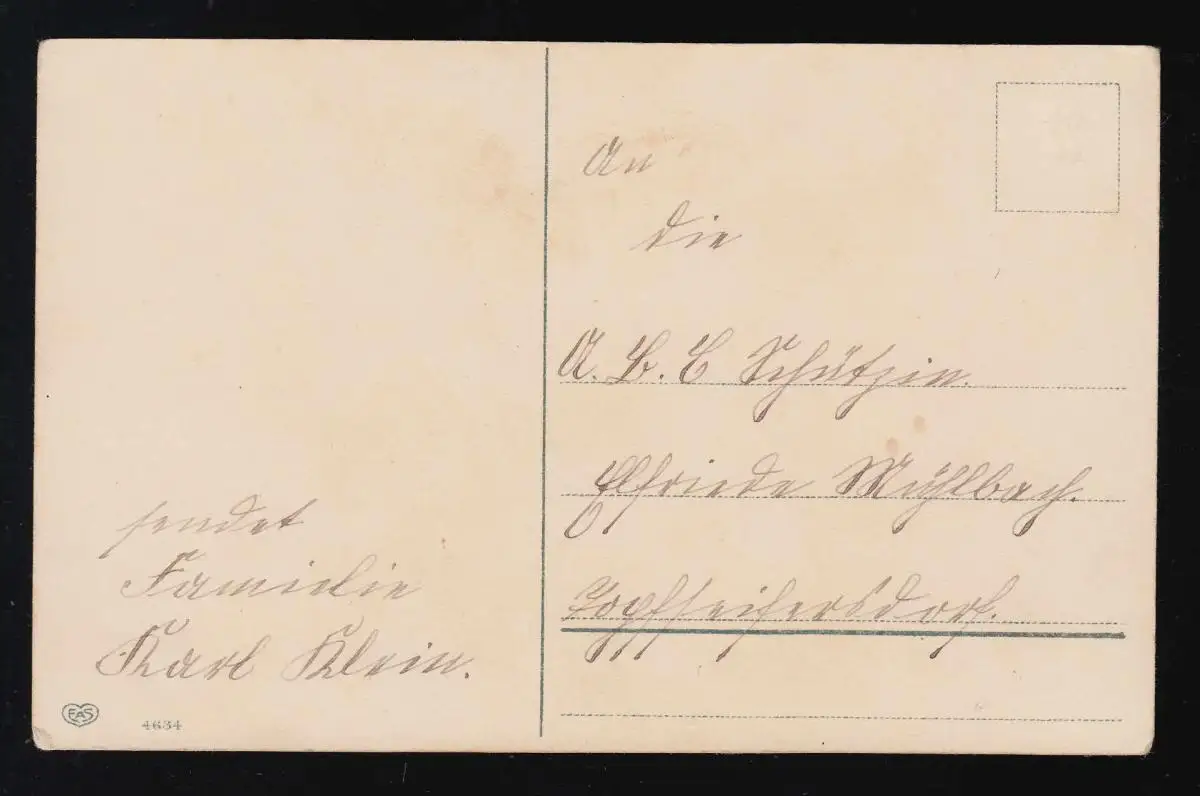 sendet
Familie
Karl Klein.
EAS
4634
An
die
A. B. C Schützin.
Elfriede Mühlbach.
Topfseifersdorf.